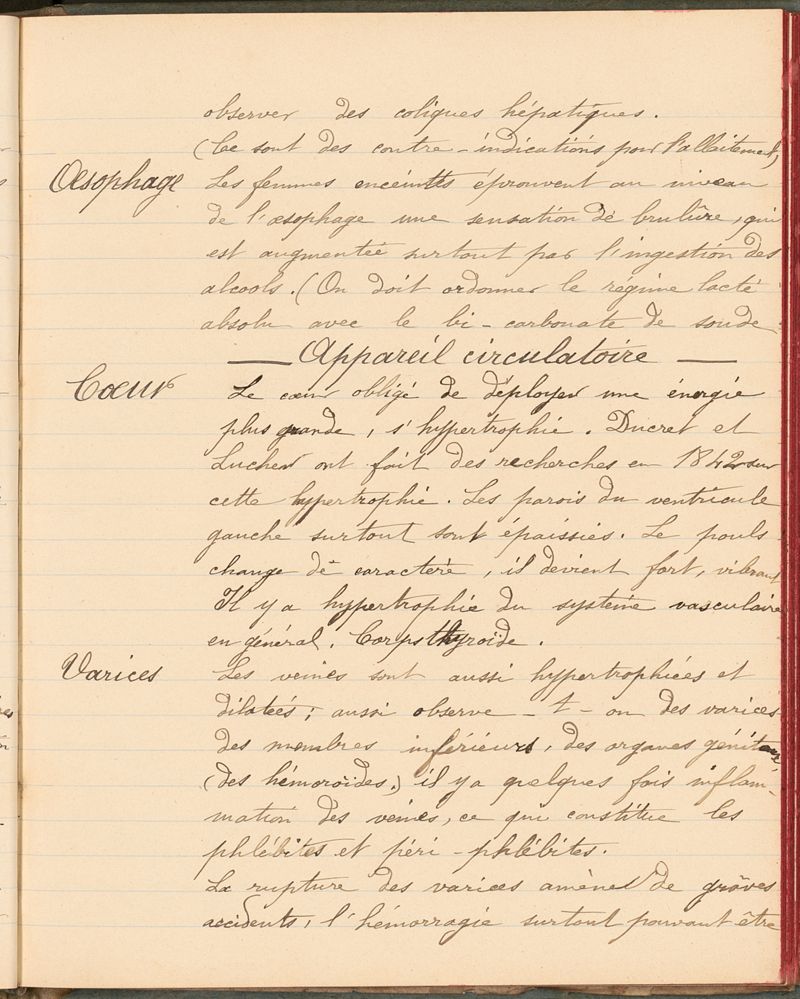 observer des coliques hépatiques.
(Ce sont des contre-indications pour l'allaitement)
Œsophage Les femmes enceintes éprouvent au niveau
de l'œsophage une sensation de brulûre, qui
est augmentée surtout par l'ingestion des
alcools. (On doit ordonner le régime lacté
absolu avec le bi-carbonate de soude
— Appareil circulatoire —
Cœur Le cœur obligé de déployer une énergie
plus grande, s'hypertrophie. Ducret et
Lucher ont fait des recherches en 1842 sur
cette hypertrophie. Les parois du ventricule
gauche surtout sont épaissies. Le pouls
change de caractère, il devient fort, vibrant
Il y a hypertrophie du système vasculaire
en général. Corps thyroïde.
Varices Les veines sont aussi hypertrophiées et
dilatées; aussi observe-t-on des varices
des membres inférieurs, des organes génitaux
(des hémoroïdes.) il y a quelques fois inflam-
mation des veines, ce qui constitue les
phlébites et péri-phlébites.
La rupture des varices amène de grâves
accidents, l'hémorragie surtout pouvant être